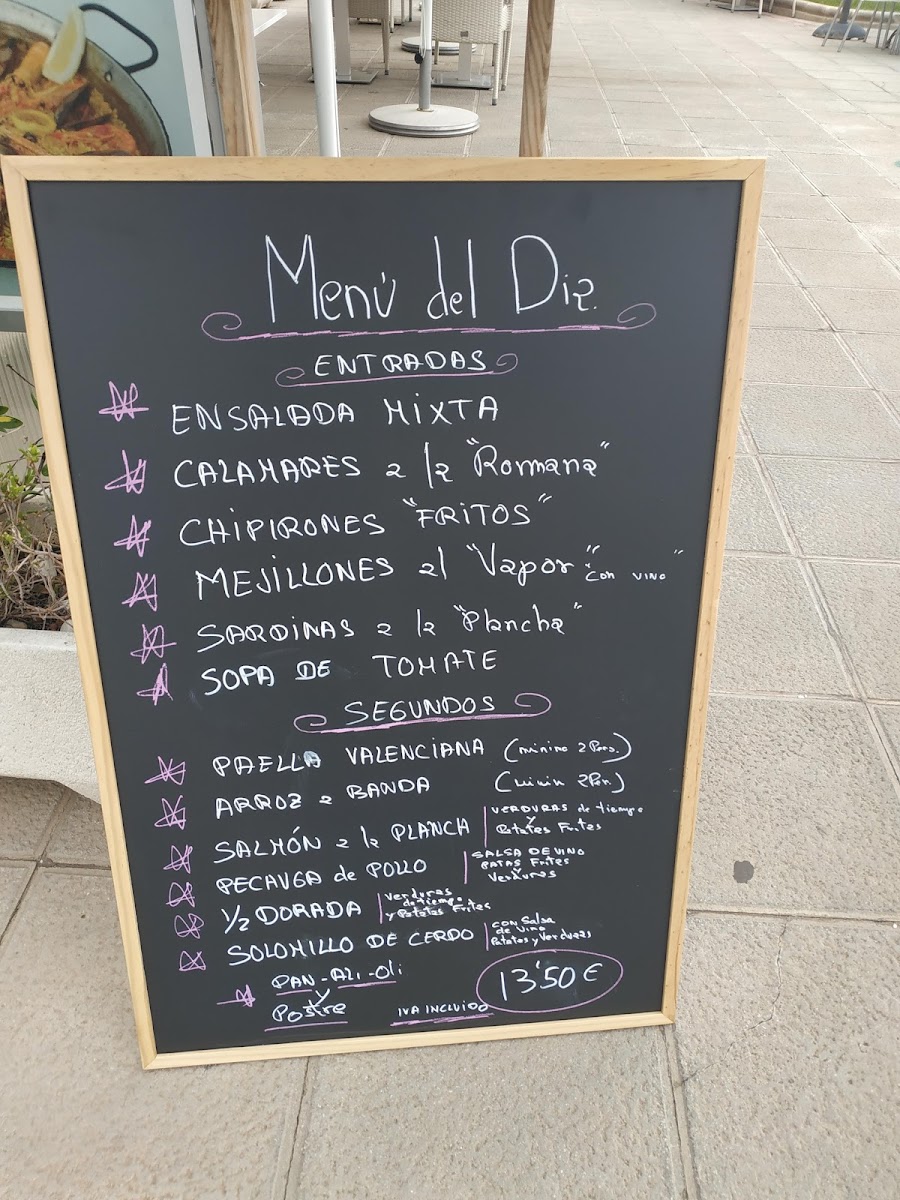 Menú del Dia
ENTRADAS
ENSALADA MIXTA
CALAMARES a la "Romana"
CHIPIRONES "FRITOS"
MEJILLONES al "Vapor" "con vino"
SARDINAS a la "Plancha"
SOPA DE TOMATE
SEGUNDOS
PAELLA VALENCIANA (minimo 2 Pers.)
ARROZ a BANDA (Minin 2 Per.)
SALMÓN a la PLANCHA VERDURAS de tiempo
y
Patates Frites
PECAUGA de POLLO SALSA DE VINO
PATAS Frites
y
Verduras
1/2 DORADA Verduras
de tiempo
y Patates Frites
SOLOMILLO DE CERDO CON Salsa
de Vino
Patatas y Verduras
PAN - ALI - OLI
y
Postre
IVA INCLUIDO
13'50 €